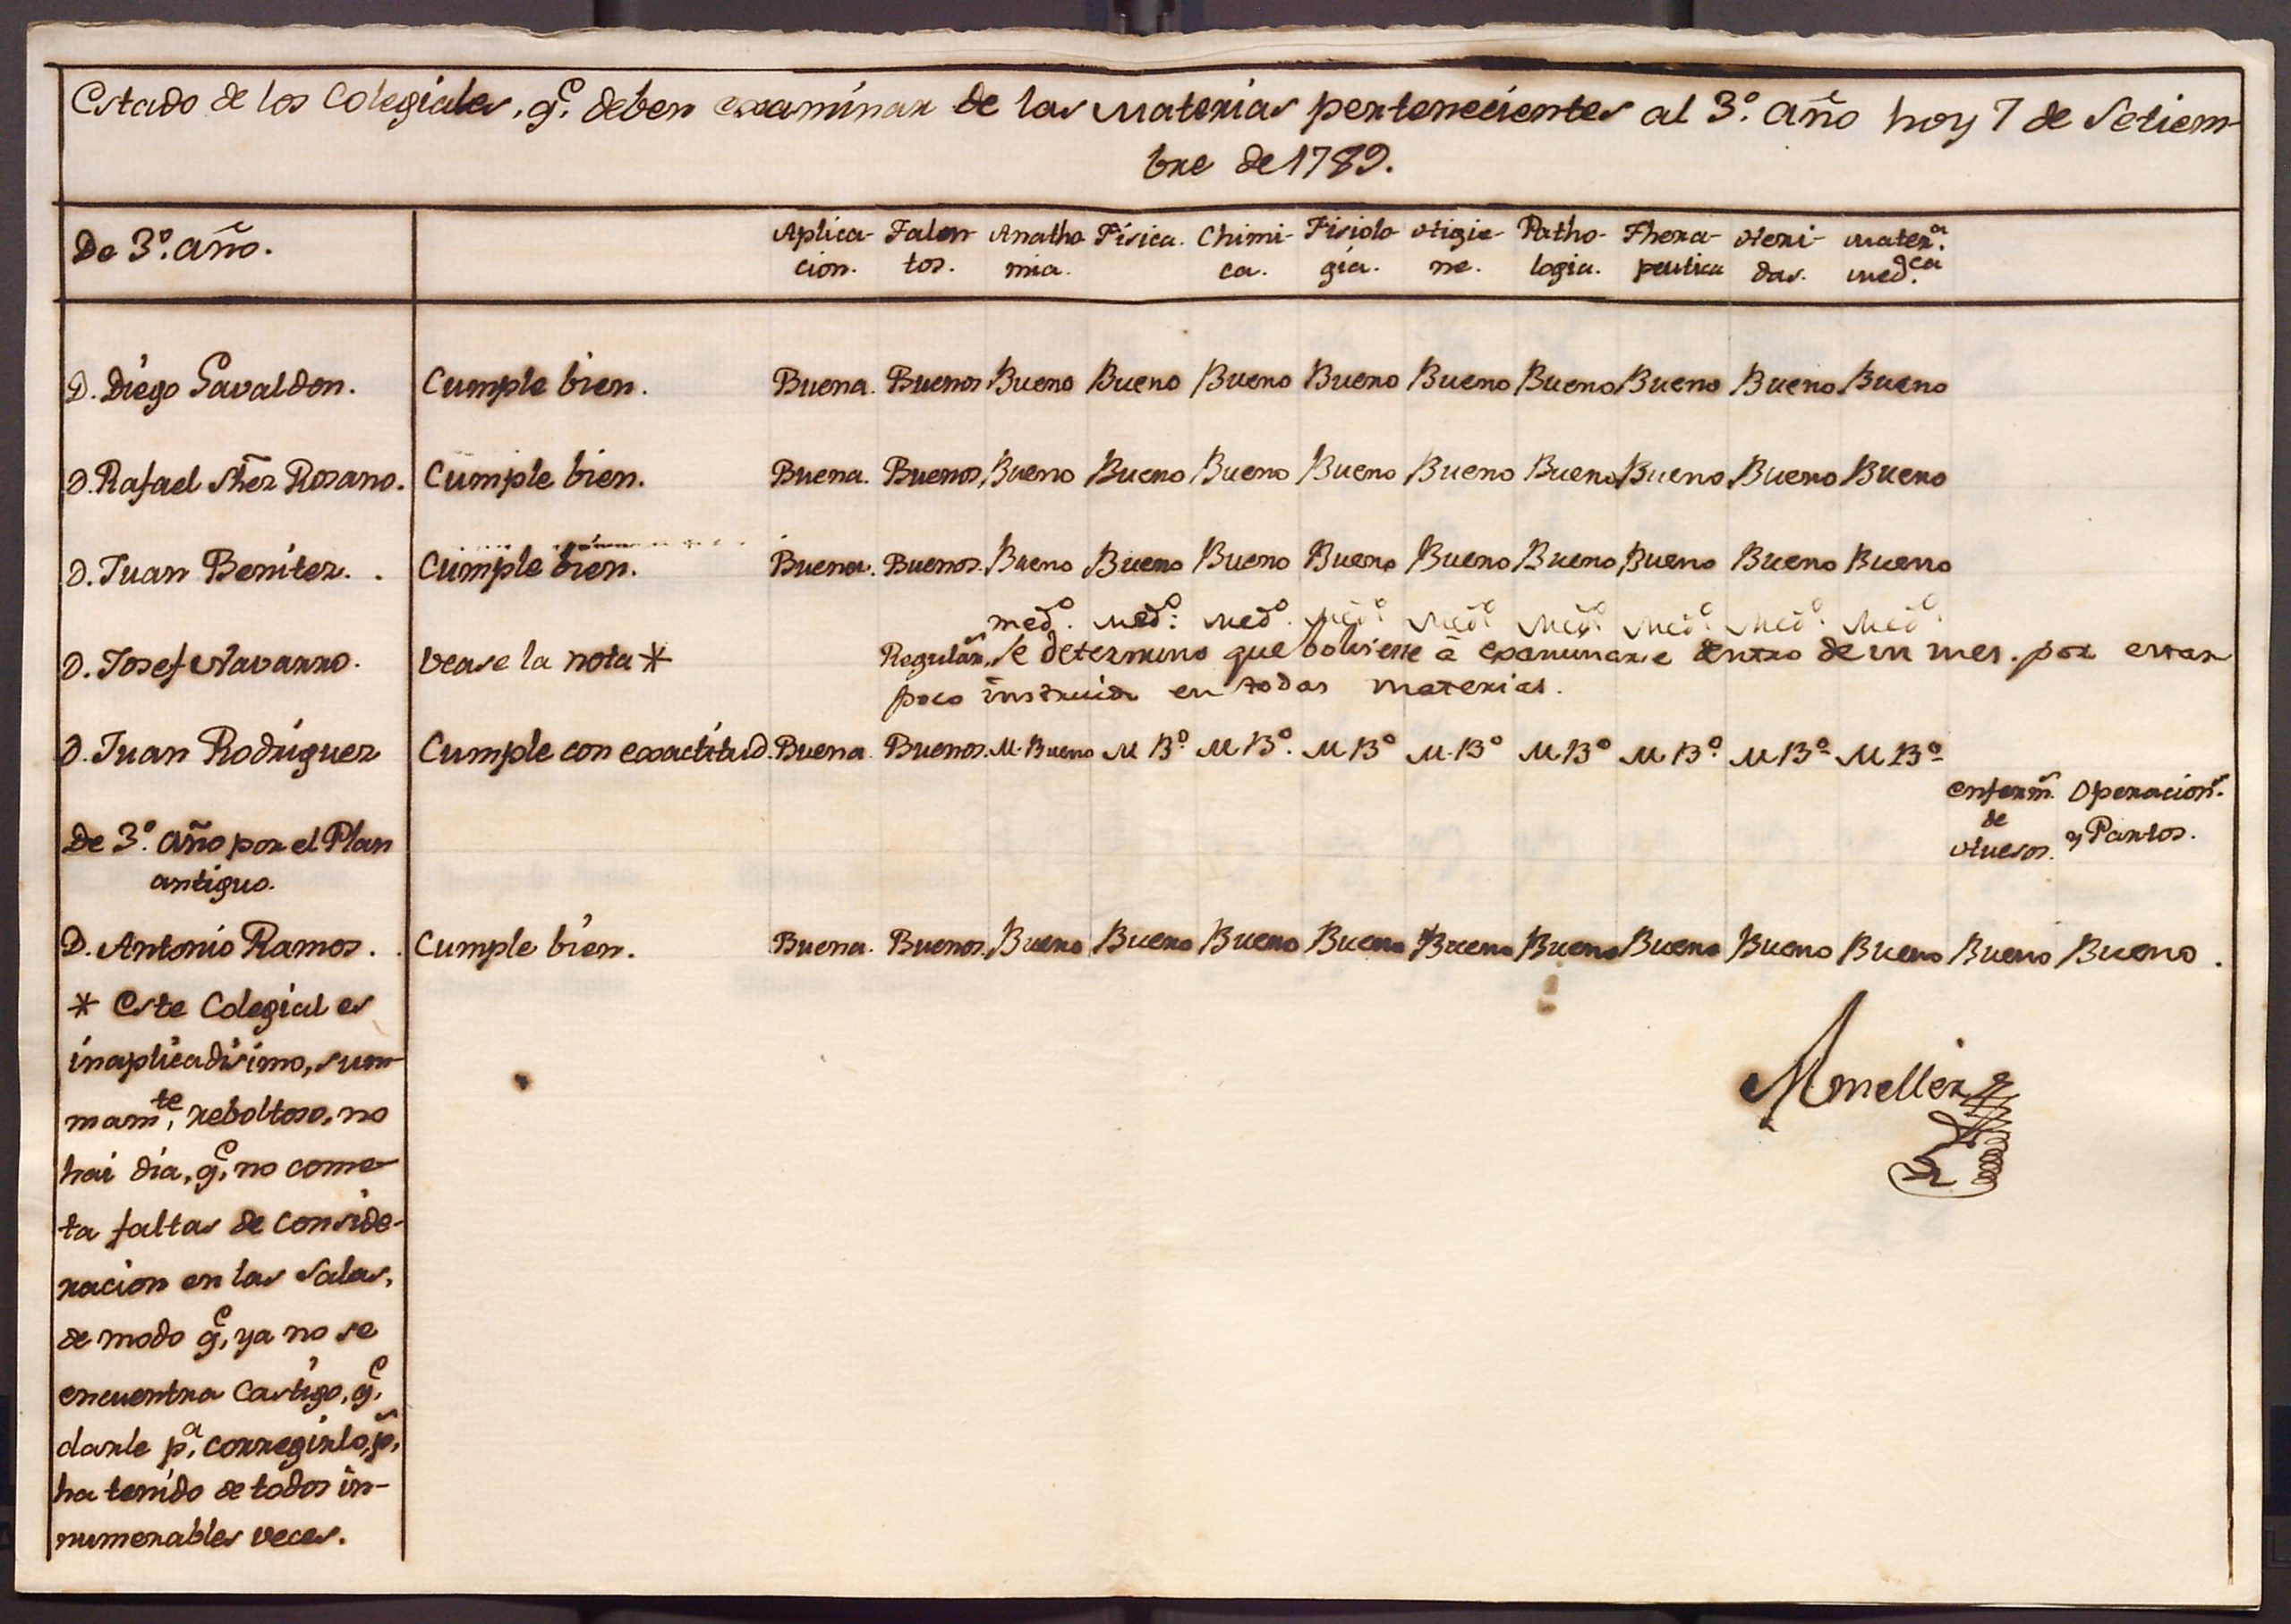 Estado de los Colegiales, q.e deben examinar de las Materias pertenecientes al 3.o año hoy 7 de Setiem-
bre de 1789.
De 3.o año. Aplica- Talen- Anatho Física. Chimi- Fisiolo- Higie- Patho- Thera- Heri- Mater.a
cion. tos. mia. ca. gia. ne. logia. peutica das. med.ca
D. Diego Gavaldon. Cumple bien. Buena. Buenos Bueno Bueno Bueno Bueno Bueno Bueno Bueno Bueno Bueno
D. Rafael Shez Rosano. Cumple bien. Buena. Buenos Bueno Bueno Bueno Bueno Bueno Bueno Bueno Bueno Bueno
D. Juan Benitez. Cumple bien. Buena. Buenos. Bueno Bueno Bueno Bueno Bueno Bueno Bueno Bueno Bueno
med.o med.o med.o med.o med.o med.o med.o med.o med.o
D. Josef Navarro. Vease la nota * Regular.s Se determino que bolviese â examinarse dentro de un mes. por estar
poco instruido en todas materias.
D. Juan Rodriguez Cumple con exactitud. Buena. Buenos. M. Bueno M B.o M B.o M B.o M. B.o M B.o M B.o M B.o M B.o
Enferm.s Operacion.s
de
Huesos. y Partos.
De 3.o año por el Plan
antiguo.
D. Antonio Ramos. Cumple bien. Buena. Buenos. Bueno Bueno Bueno Bueno Bueno Bueno Bueno Bueno Bueno Bueno Bueno.
* Este Colegial es
inaplicadisimo, sum-
mam.te reboltoso, no
hai dia, q.e no come-
ta faltas de conside-
racion en las Salas,
de modo q.e ya no se
encuentra Castigo, q.e
darle p.a corregirlo, p.s
ha tenido de todos in-
numerables veces.
Ameller